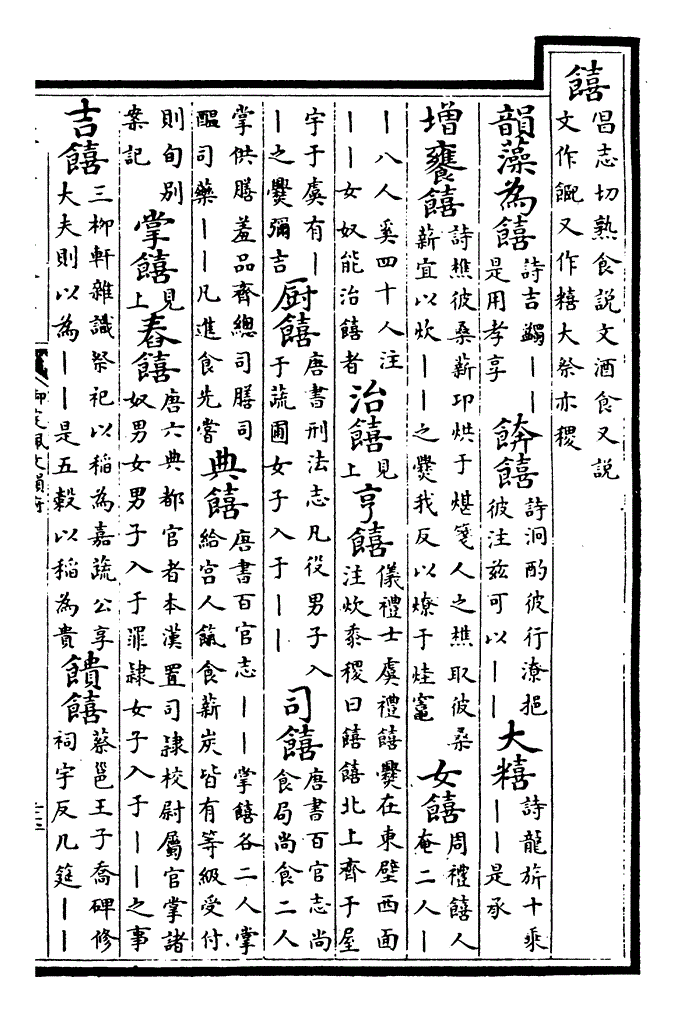 饎倡志切熟食說文酒食又說文作䬣又作糦大祭亦稷
韻藻為饎詩吉蠲——是用孝享餴饎詩泂酌彼行潦挹彼注玆可以——大糦詩龍旂十乘——是承
增饔饎詩樵彼桑薪卬烘于煁箋人之樵取彼桑薪宜以炊——之爨我反以燎于烓竈女饎周禮饎人奄二人—
—八人奚四十人注——女奴能治饎者治饎見上亨饎儀禮士虞禮饎爨在東壁西面注炊黍稷曰饎饎北上齊于屋
宇于虞有——之爨彌吉厨饎唐書刑法志凡役男子入于蔬圃女子入于——司饎唐書百官志尚食局尚食二人
掌供膳羞品齊總司膳司醞司藥——凡進食先嘗典饎唐書百官志——掌饎各二人掌給宮人饎食薪炭皆有等級受付
則旬別案記掌饎見上舂饎唐六典都官者本漢置司隷校尉屬官掌諸奴男女男子入于罪隷女子入于——之事
吉饎三柳軒雜識祭祀以稻為嘉蔬公享大夫則以為——是五穀以稻為貴饋饎蔡邕王子喬碑修祠宇反几筵——